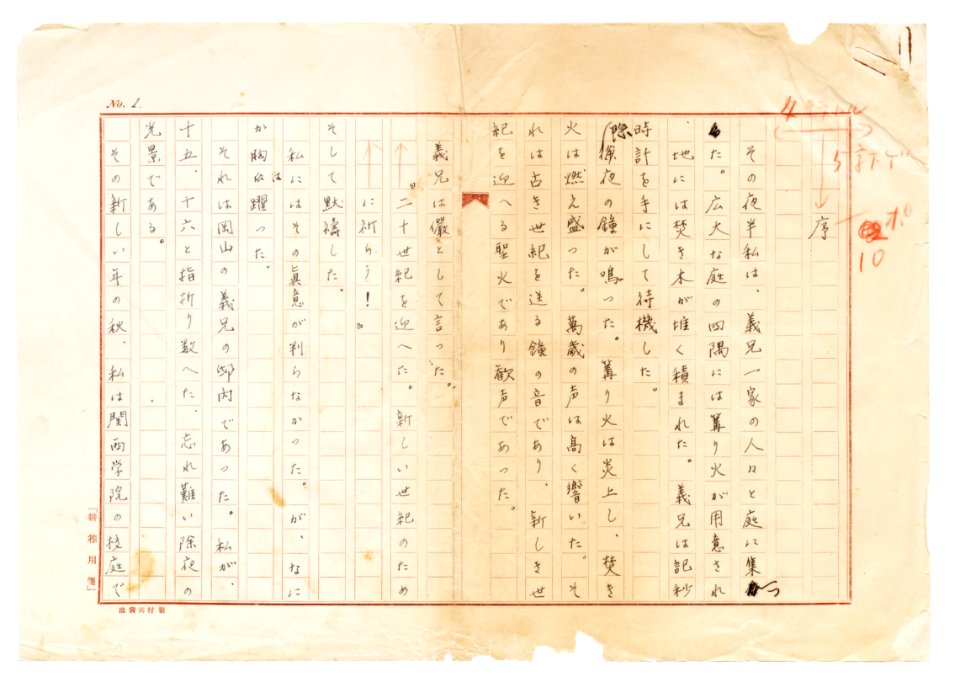 No. 1.
4行トル
5字下ゲ
10 ポ
序
その夜半私は、義兄一家の人々と庭に集つ
た。広大な庭の四隅には篝り火が用意され
地には焚き木が堆く積まれた。義兄は記秒
時計を手にして待機した。
除夜の鐘が鳴つた。篝り火は炎上し、焚き
火は燃え盛つた。萬歳の声は高く響いた。そ
れは古き世紀を送る鐘の音であり、新しき世
紀を迎へる聖火であり歓声であつた。
義兄は儼として言つた。
『二十世紀を迎へた。新しい世紀のため
に祈らう!』
そして默禱した。
私にはその眞意が判らなかつた。が、なに
か胸は躍つた。
それは岡山の義兄の邸内であつた。私が、
十五、十六と指折り数へた、忘れ難い除夜の
光景である。
その新しい年の秋、私は関西学院の校庭で